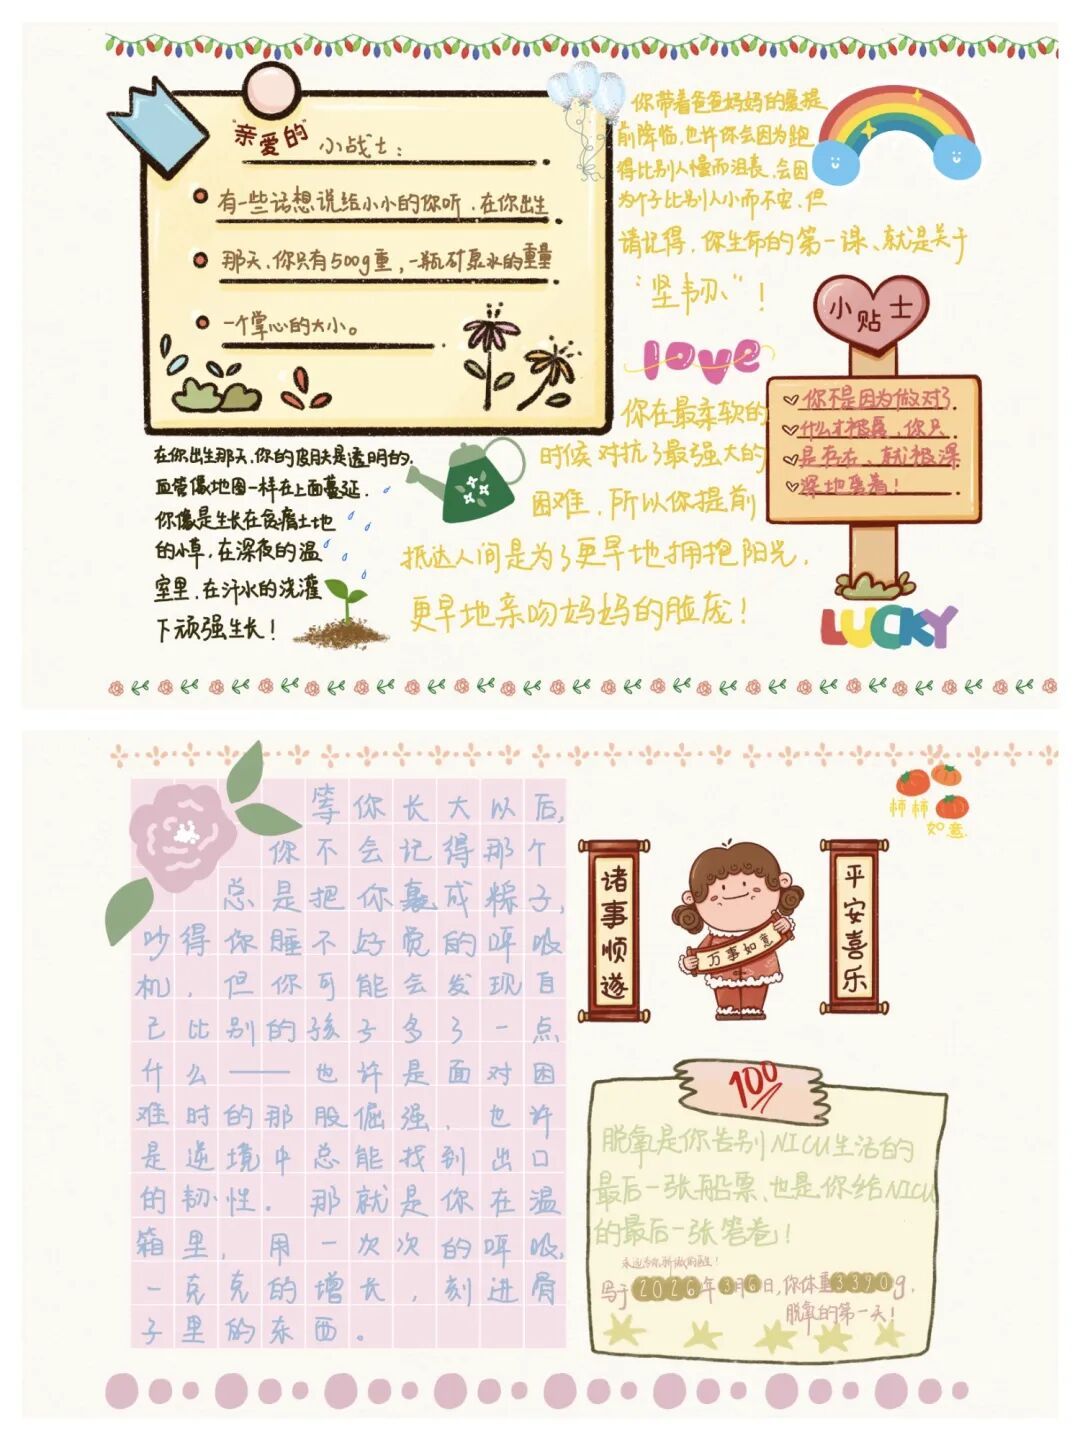 "亲爱的"小战士：
有一些话想说给小小的你听，在你出生
那天，你只有500g重，一瓶矿泉水的重量
一个掌心的大小。
你带着爸爸妈妈的爱提
前降临，也许你会因为跑
得比别人慢而沮丧，会因
为个子比别人小而不安，但
请记得，你生命的第一课、就是关于
"坚韧"！
love
小贴士
你不是因为做对了
什么才被爱，你只
是存在、就被深
深地爱着！
你在最柔软的
时候对抗了最强大的
困难，所以你提前
抵达人间是为了更早地拥抱阳光，
更早地亲吻妈妈的脸庞！
LUCKY
在你出生那天，你的皮肤是透明的，
血管像地图一样在上面蔓延，
你像是生长在贫瘠土地
的小草，在深夜的温
室里，在汗水的浇灌
下顽强生长！
等你长大以后，
你不会记得那个
总是把你裹成粽子，
吵得你睡不好觉的呼吸
机，但你可能会发现自
己比别的孩子多了一点
什么——也许是面对困
难时的那股倔强，也许
是逆境中总能找到出口
的韧性。那就是你在温
箱里，用一次次的呼吸，
一克克的增长，刻进骨
子里的东西。
柿柿
如意
诸事顺遂
万事如意
平安喜乐
100
脱氧是你告别NICU生活的
最后一张船票、也是你给NICU
的最后一张答卷！
永远为你骄傲的医生！
写于2026年3月6日，你体重3390g，
脱氧的第一天！